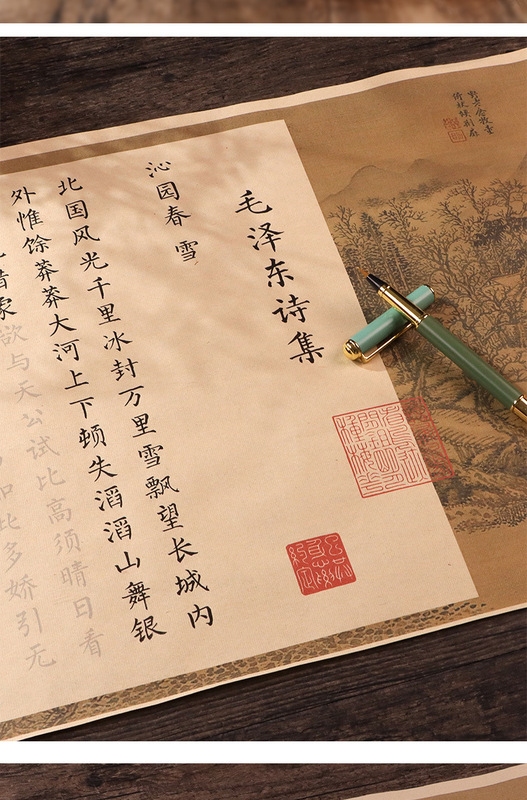 毛泽东诗集
沁园春 雪
北国风光千里冰封万里雪飘望长城内
外惟馀莽莽大河上下顿失滔滔山舞银
象欲与天公试比高须晴日看
此多娇引无